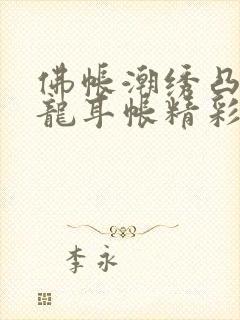 佛帐潮绣凸
龍耳帐精彩
李永